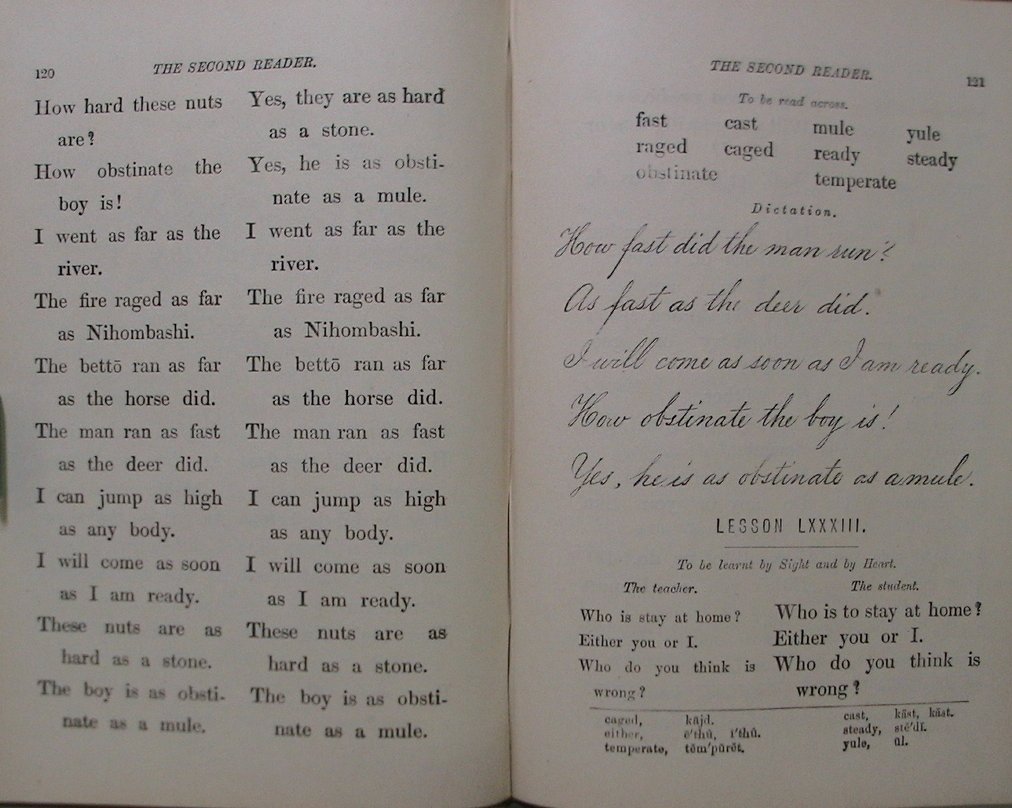 120 THE SECOND READER.
How hard these nuts
are?
How obstinate the
boy is!
I went as far as the
river.
The fire raged as far
as Nihombashi.
The bettō ran as far
as the horse did.
The man ran as fast
as the deer did.
I can jump as high
as any body.
I will come as soon
as I am ready.
These nuts are as
hard as a stone.
The boy is as obsti-
nate as a mule.
Yes, they are as hard
as a stone.
Yes, he is as obsti-
nate as a mule.
I went as far as the
river.
The fire raged as far
as Nihombashi.
The bettō ran as far
as the horse did.
The man ran as fast
as the deer did.
I can jump as high
as any body.
I will come as soon
as I am ready.
These nuts are as
hard as a stone.
The boy is as obsti-
nate as a mule.
THE SECOND READER. 121
To be read across.
fast cast mule yule
raged caged ready steady
obstinate temperate
Dictation.
How fast did the man run?
As fast as the deer did.
I will come as soon as I am ready.
How obstinate the boy is!
Yes, he is as obstinate as a mule.
LESSON LXXXIII.
To be learnt by Sight and by Heart.
The teacher. The student.
Who is stay at home?
Either you or I.
Who do you think is
wrong?
Who is to stay at home?
Either you or I.
Who do you think is
wrong?
caged, kājd.
either,
temperate,
cast,
steady,
yule, ūl.